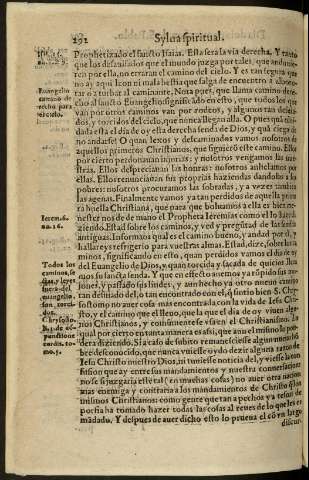 292 Sylua spiritual.
Prophetizado el sancto Isaias. Esta sera la via derecha. Y tanto
que los desatinados que el mundo juzga por tales, que anduuie-
ren por ella, no erraran el camino del cielo. Y es tan segura que
no ay aqui leon ni mala bestia que salga de encuentro a
turbar al caminante. Nota pues, que llama camino dere-
cho al sancto Euangelio significado en esto, que todos los que
van por otros caminos van por rodeos, y algunos tan
dos, y torcidos del cielo, que nunca llegan alla. O pues
esta el dia de oy esta derecha senda de Dios, y quã
no andarse! O quan lexos y descaminados vamos nosotros de
aquellos primeros Christianos, que siguierõ este camino. Ellos
por cierto perdonauan injurias: y nosotros vengamos las nue-
stras. Ellos despreciauan las honras: nosotros anhelamos por
ellas. Ellos renunciauan sus proprias haziendas dandolas a los
pobres: nosotros procuramos las sobradas, y a vezes tambiẽ
las agenas. Finalmente vamos ya tan perdidos de aquella prime-
ra huella Christiana, que para que boluamos a ella es bien me-
nester nos de de mano el Propheta Ieremias como el lo haze di-
ziendo. Estad sobre los caminos, y ved y preguntad de las sendas
antiguas. Informaos qual es el camino bueno, y andad por el, y
hallareys refrigerio para vuestras almas. Estad, dize, sobre los ca-
minos, significando en esto, quan perdidos vamos el dia de oy
del Euangelio de Dios, y quan torcida y sacada de quicios lleua-
mos su sancta senda. Y que en efecto auemos ya rõpido sus
jones, y passado sus lindes, y aun hecho ya otro nueuo camino
tan desuiado del, o tan encontrado con el, q̃ sintio bien S. Chry-
sostomo no auer cosa mas encontrada con la vida de Iesu Chri-
sto, y el camino que el lleuo, que la que el dia de oy viuen algu-
nos Christianos, y comunmente se vsa en el Christianismo. La
qual por cierto en tanta manera es assi, que aun el mismo lo pon-
dera diziendo. Si a caso de subito remaneciesse algun
bre desconocido, que nunca vuiesse oydo dezir alguna razon de
Iesu Christo nuestro Dios, ni tuuiesse noticia del, y viesse
fusion que ay entre sus mandamientos y nuestra conuersacion
no se si juzgaria este tal (en muchas cosas) no auer otra nacion
mas enemiga y contraria a los mandamientos de Christo q̃ los
mismos Christianos: como gente que tan a pechos y a tesõ
porfia ha tomado hazer todas las cosas al reues de lo que les es
mãdado. Y despues de auer dicho esto lo prueua el cõ vn largo
discur-
Euangelio
camino de
recho para
el cielo.
Ierem. 6.
nu. 16.
Todos los
caminos, se
das, y leyes
fuera del
euangelio
son torci-
dos.
Chrysosto.
li. 1. de cõ-
punctione
cordis. to-
mo. 5.